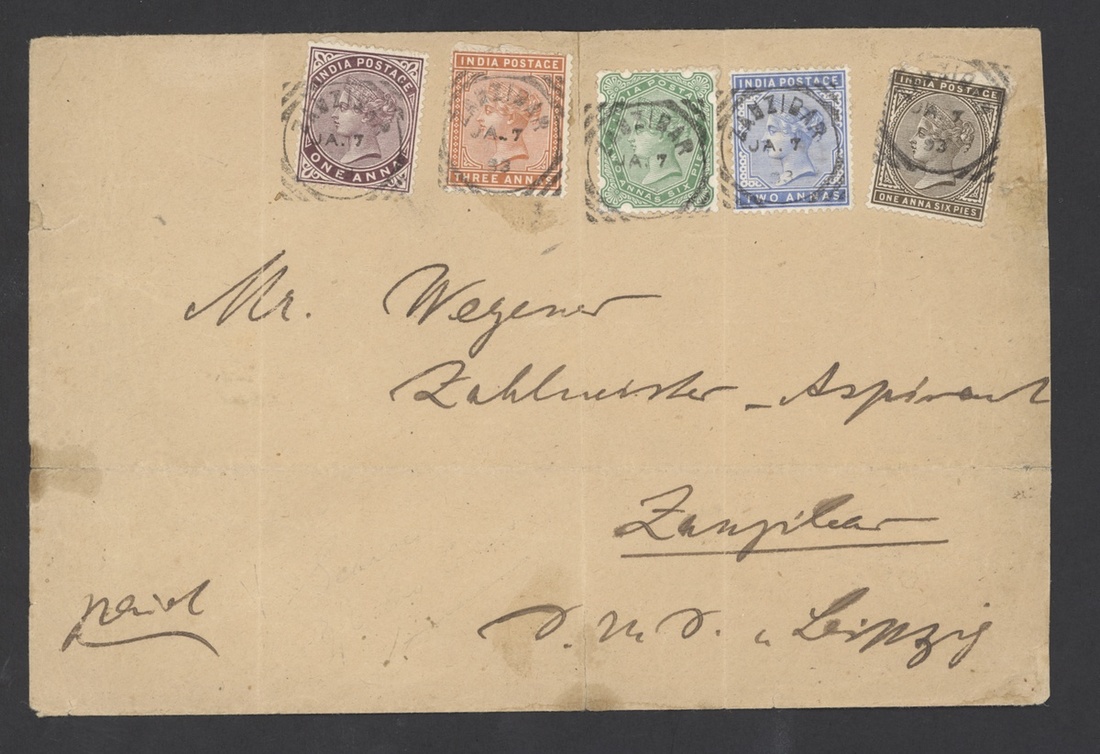 INDIA POSTAGE
ONE ANNA
ZANZIBAR
JA. 7
INDIA POSTAGE
THREE ANNAS
ZANZIBAR
JA. 7
93
INDIA POSTAGE
TWO ANNAS SIX PIES
ZANZIBAR
JA. 7
INDIA POSTAGE
TWO ANNAS
ZANZIBAR
JA. 7
93
INDIA POSTAGE
ONE ANNA SIX PIES
JA. 7
93
Mr. Wegener
Zahlmeister - Aspirant
Zanzibar
paid
Leipzig